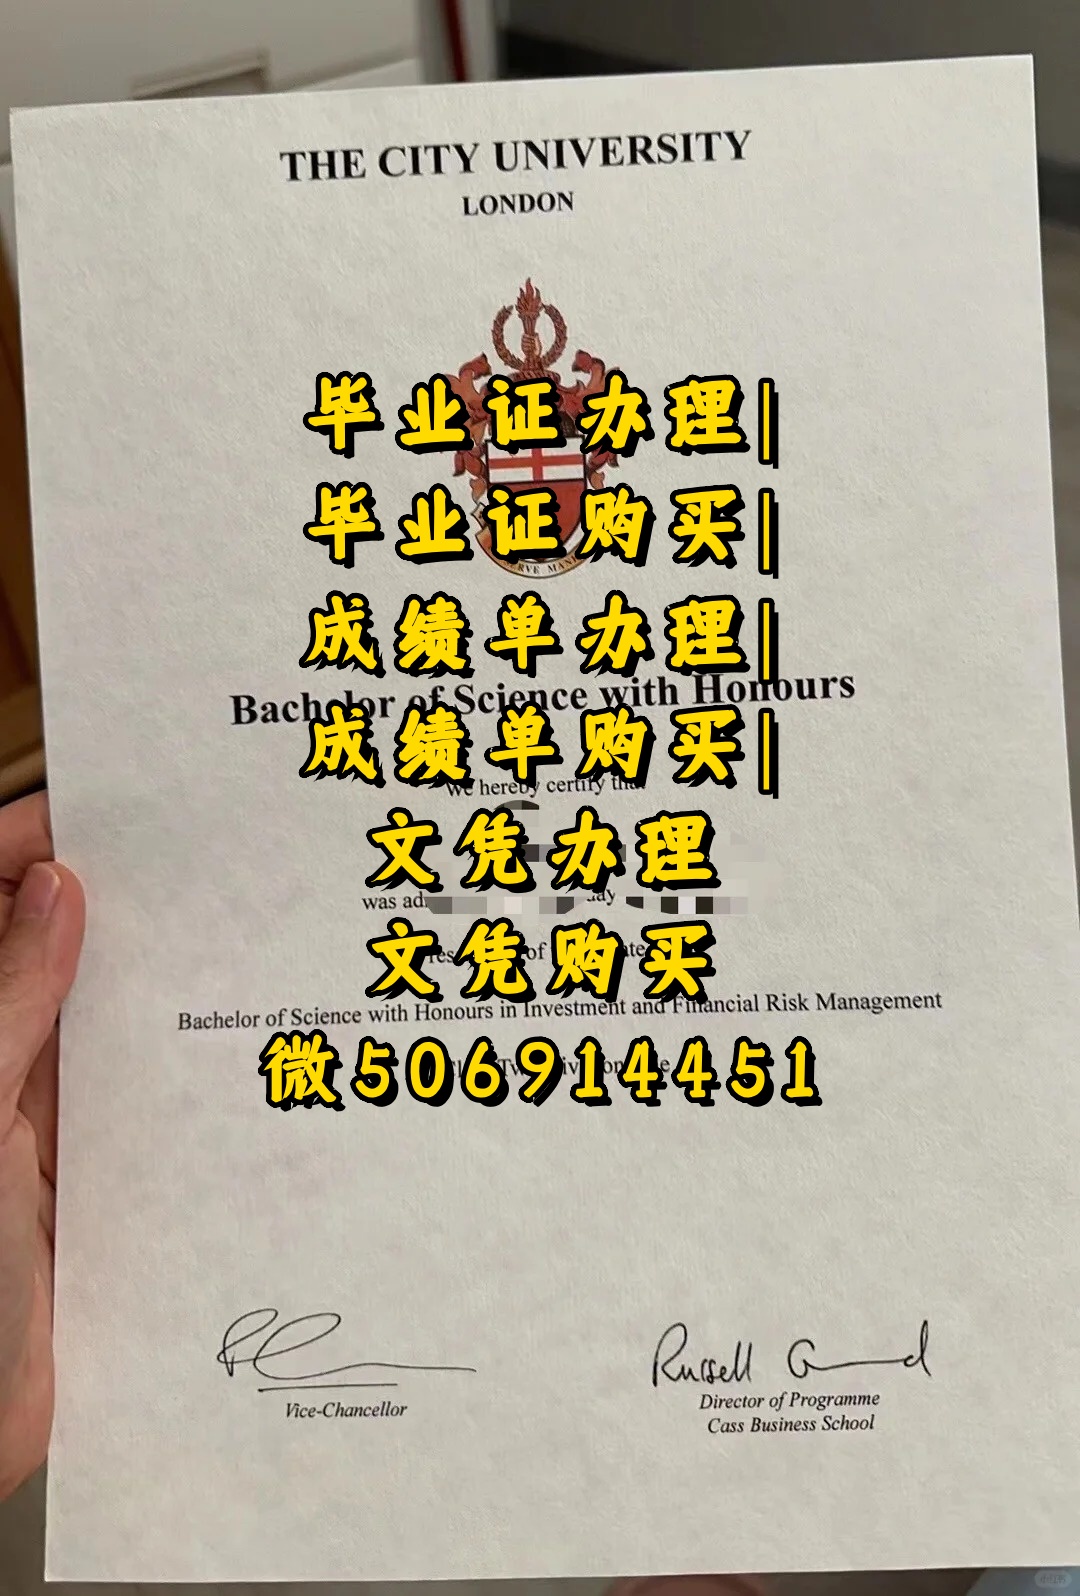 THE CITY UNIVERSITY
LONDON
毕业证办理|
毕业证购买|
成绩单办理|
Bachelor of Science with Honours
成绩单购买|
We hereby certify that
文凭办理
was
文凭购买
of
Bachelor of Science with Honours in Investment and Financial Risk Management
微506914451
Vice-Chancellor
Russell
Director of Programme
Cass Business School